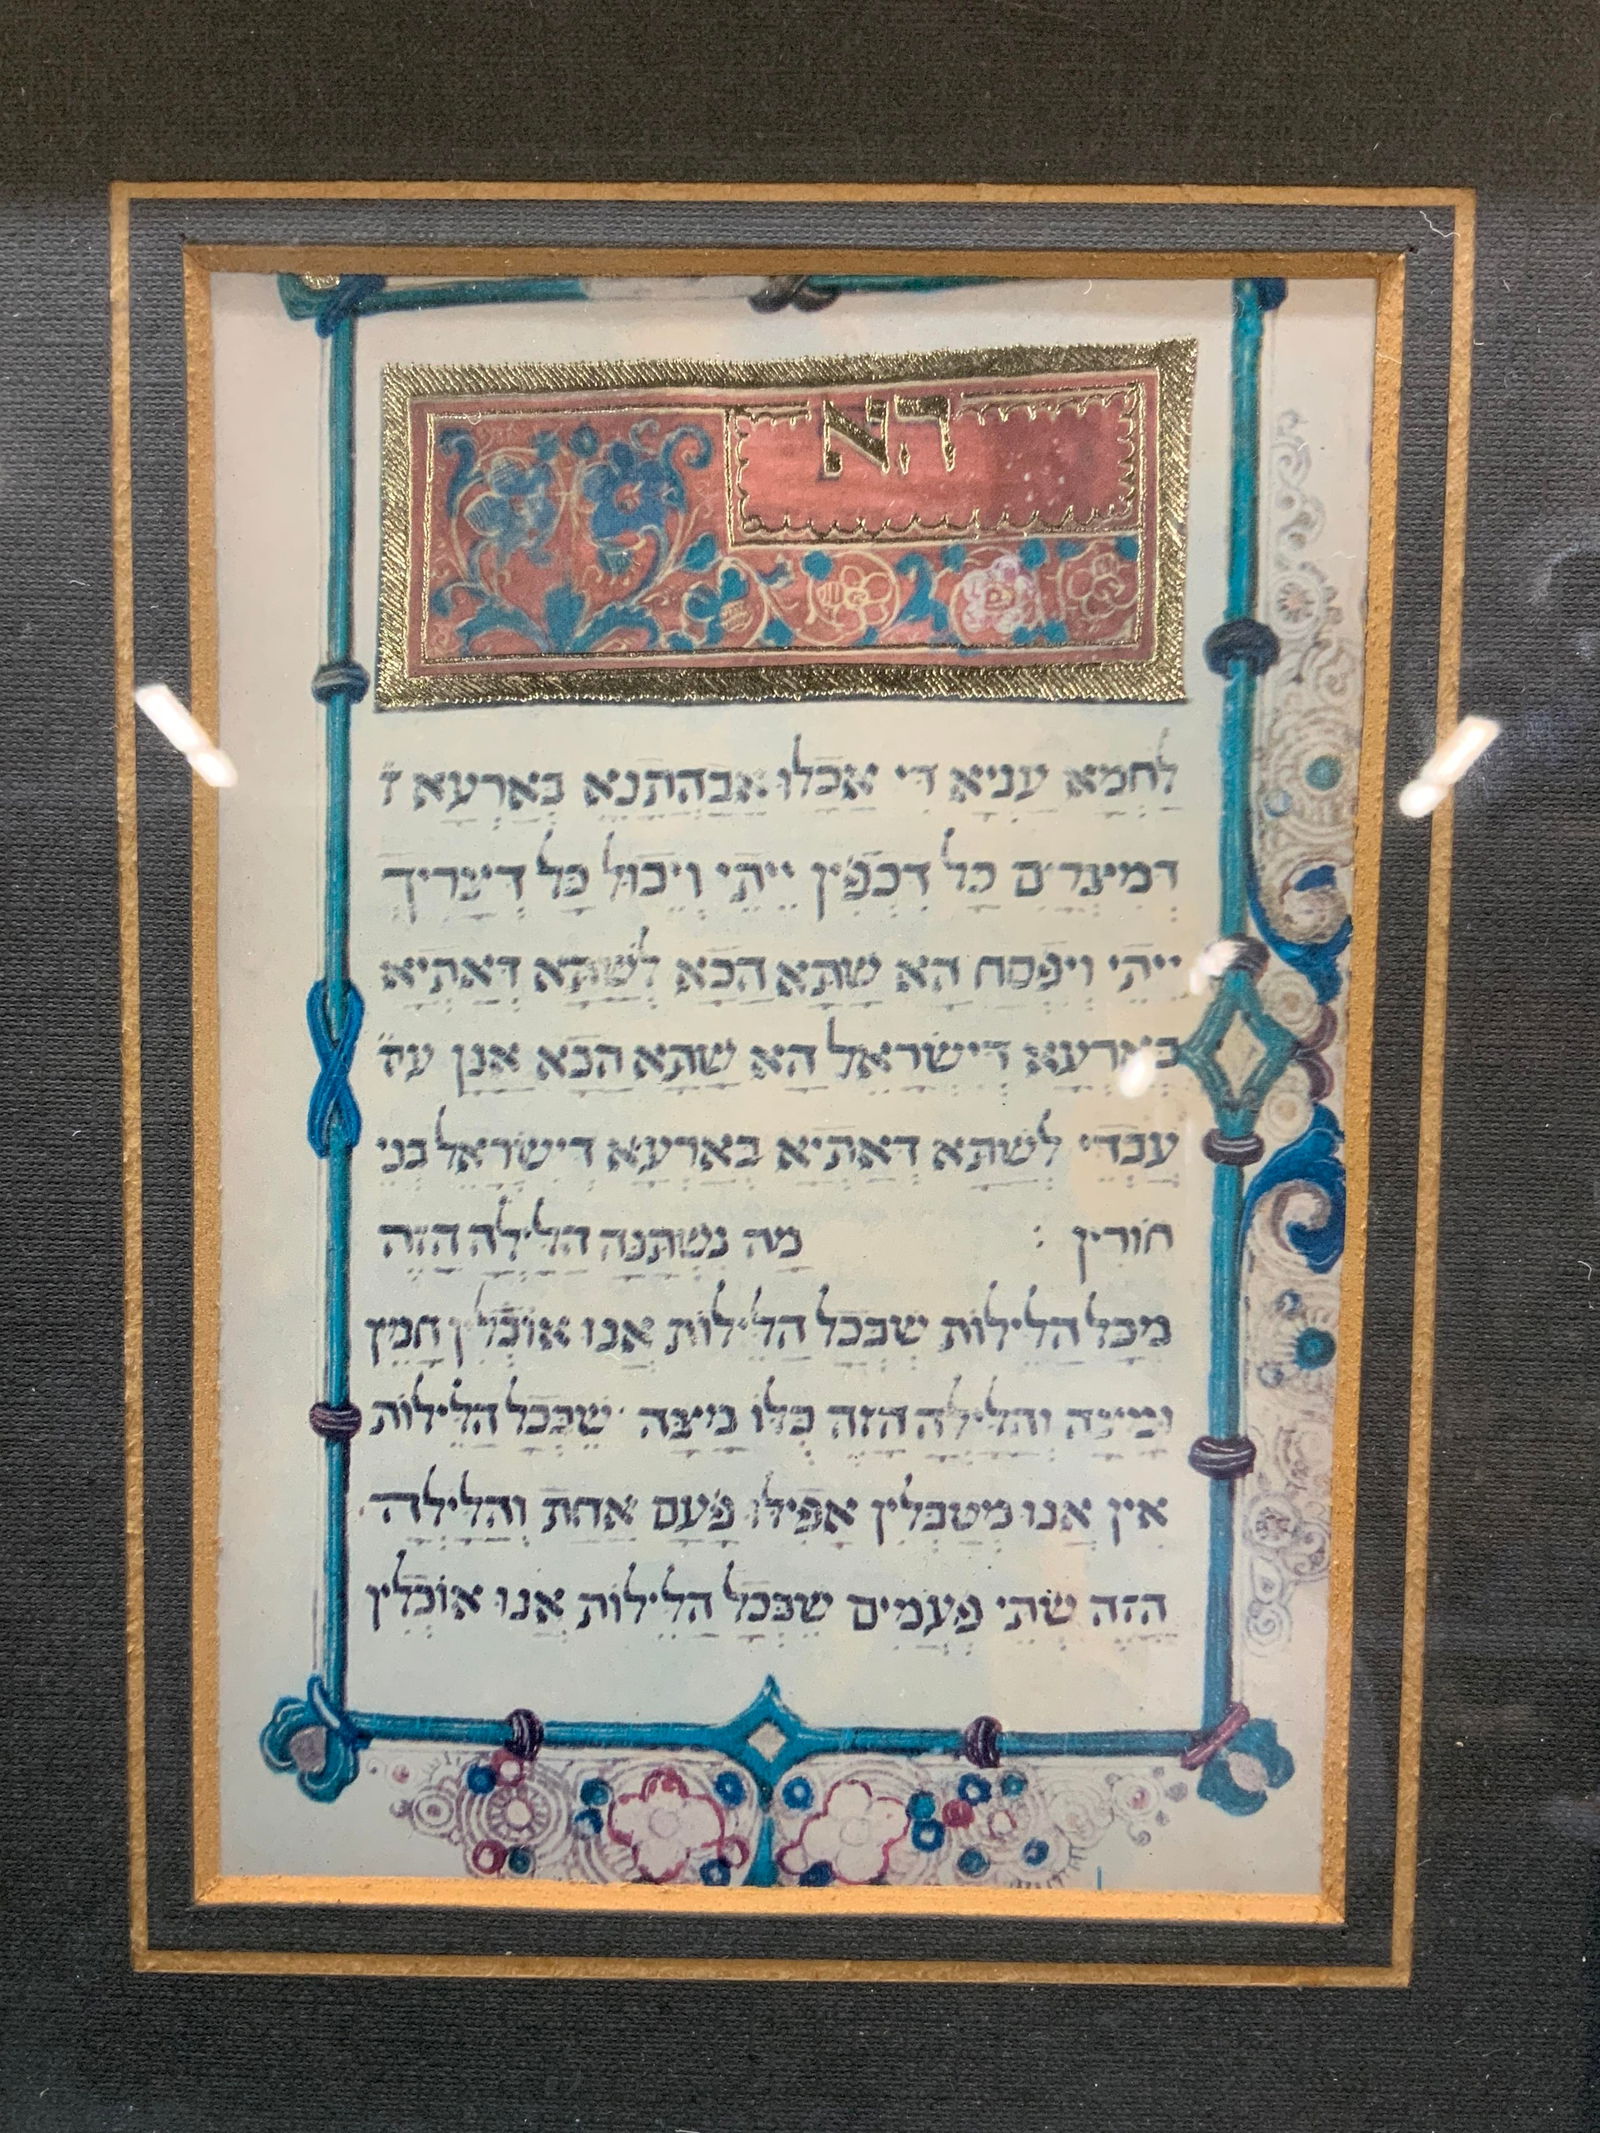 הָא
לַחְמָא עַנְיָא דִי אֲכָלוּ אֲבָהָתַנָא בְּאַרְעָא ד׳
דְמִצְרַיִם כָּל דִכְפִין יֵיתֵי וְיֵכוֹל כָּל דִצְרִיךְ
יֵיתֵי וְיִפְסַח הָא שַׁתָּא הָכָא לְשַׁתָּא דְאַתְיָא
בְּאַרְעָא דְיִשְׂרָאֵל הָא שַׁתָּא הָכָא אֲנַן עַב׳
עַבְדֵי לְשַׁתָּא דְאַתְיָא בְּאַרְעָא דְיִשְׂרָאֵל בְּנֵי
חוֹרִין : מַה נִּשְׁתַּנָּה הַלַּיְלָה הַזֶּה
מִכָּל הַלֵּילוֹת שֶׁבְּכָל הַלֵּילוֹת אָנוּ אוֹכְלִין חָמֵץ
וּמַצָּה וְהַלַּיְלָה הַזֶּה כֻּלּוֹ מַצָּה שֶׁבְּכָל הַלֵּילוֹת
אֵין אָנוּ מְטַבְּלִין אֲפִילוּ פַּעַם אַחַת וְהַלַּיְלָה
הַזֶּה שְׁתֵּי פְעָמִים שֶׁבְּכָל הַלֵּילוֹת אָנוּ אוֹכְלִין